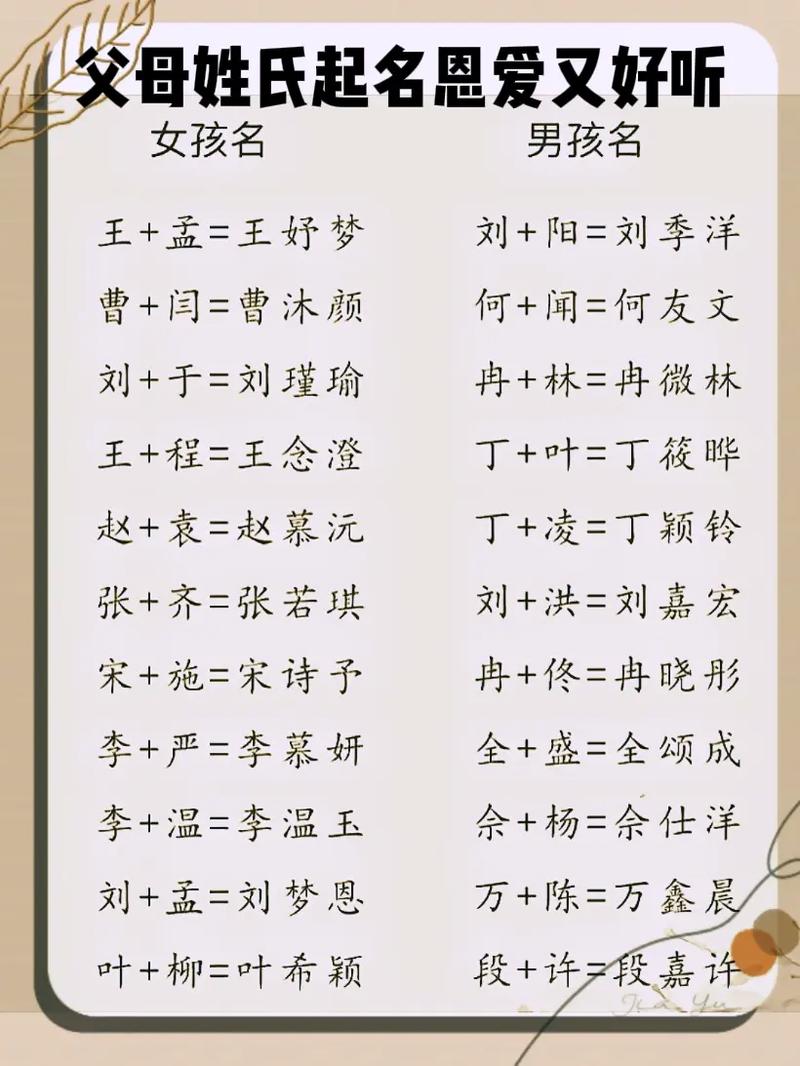 父母姓氏起名恩爱又好听
女孩名
王+孟=王妤梦
曹+闫=曹沐颜
刘+于=刘瑾瑜
王+程=王念澄
赵+袁=赵慕沅
张+齐=张若琪
宋+施=宋诗予
李+严=李慕妍
李+温=李温玉
刘+孟=刘梦恩
叶+柳=叶希颖
男孩名
刘+阳=刘季洋
何+闻=何友文
冉+林=冉微林
丁+叶=丁筱晔
丁+凌=丁颖铃
刘+洪=刘嘉宏
冉+佟=冉晓彤
全+盛=全颂成
佘+杨=佘仕洋
万+陈=万鑫晨
段+许=段嘉许